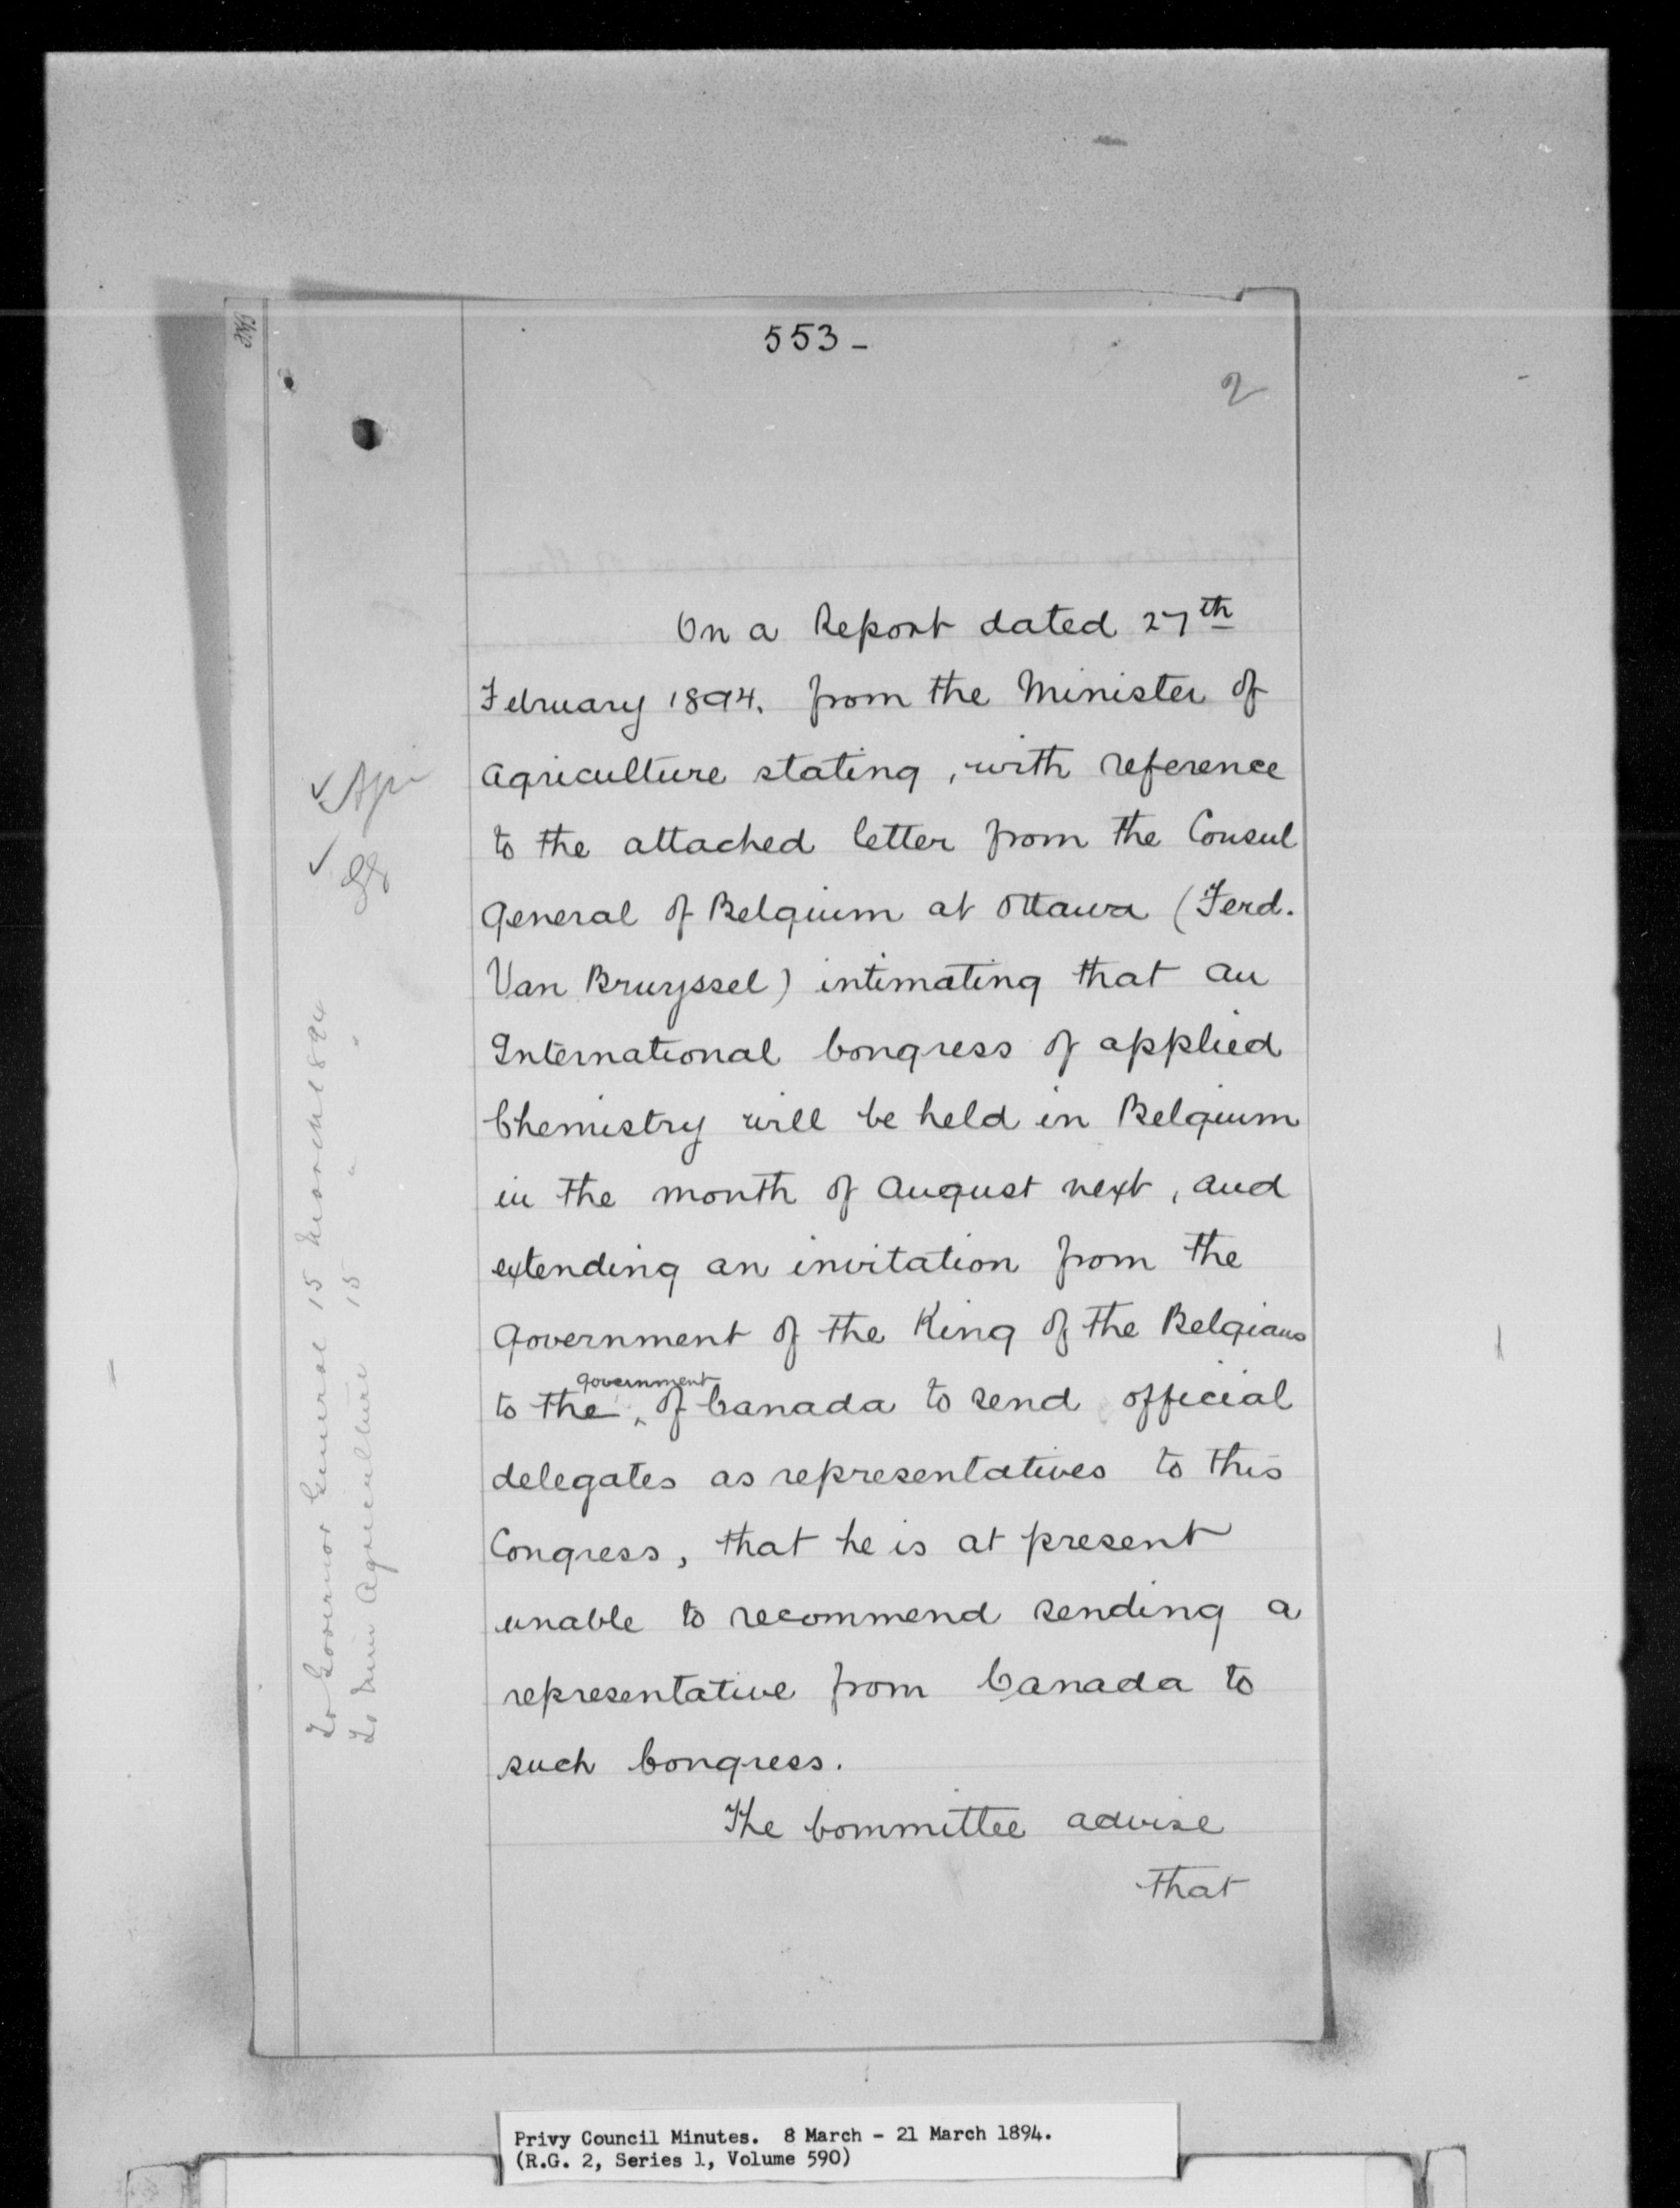 553-
2
On a Report dated 27th
February 1894. from the Minister of
agriculture stating, with reference
to the attached letter from the Consul
General of Belgium at Ottawa (Ferd.
Van Bruyssel) intimating that an
International Congress of applied
Chemistry will be held in Belgium
in the month of August next, and
extending an invitation from the
Government of the King of the Belgians
to the government of Canada to send official
delegates as representatives to this
Congress, that he is at present
unable to recommend sending a
representative from Canada to
such Congress.
The Committee advise
that
To Governor General 15 March 1894
To Min Agriculture 15 " "
Privy Council Minutes. 8 March - 21 March 1894.
(R.G. 2, Series 1, Volume 590)